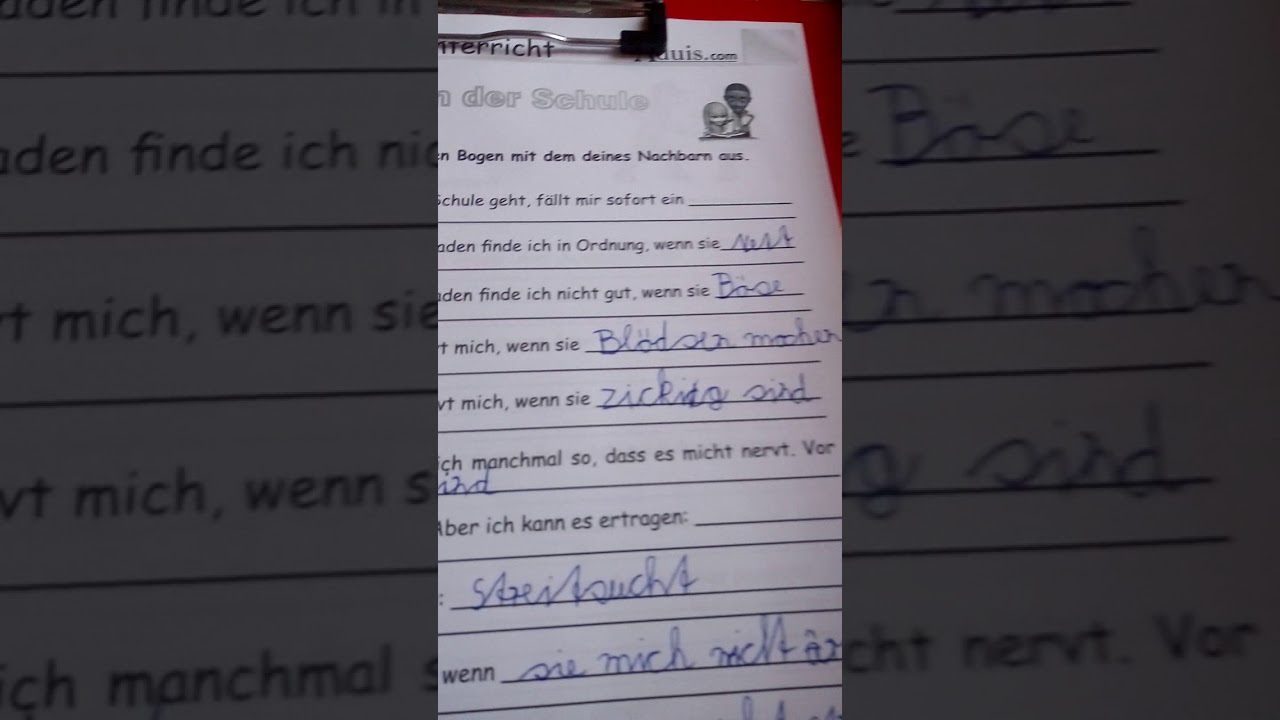 nterricht
Aduis.com
n der Schule
n Bogen mit dem deines Nachbarn aus.
Schule geht, fällt mir sofort ein
aden finde ich in Ordnung, wenn sie
aden finde ich nicht gut, wenn sie Böse
t mich, wenn sie Blödsen machen
vt mich, wenn sie zickig sind
ich manchmal so, dass es micht nervt. Vor
sind
Aber ich kann es ertragen:
: Streitsucht
wenn sie mich nicht är